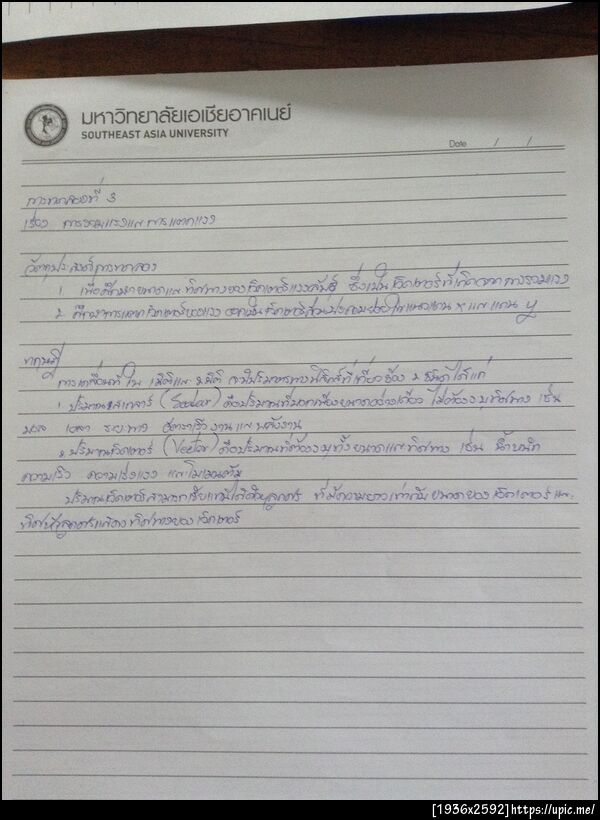 มหาวิทยาลัยเอเชียอาคเนย์
SOUTHEAST ASIA UNIVERSITY
Date / /
การทดลองที่ 3
เรื่อง การรวมแรงและการแตกแรง
วัตถุประสงค์การทดลอง
1. เพื่อศึกษาขนาดและทิศทางของเวกเตอร์แรงลัพธ์ ซึ่งเป็นเวกเตอร์ที่เกิดจากการรวมแรง
2. ศึกษาการแตกเวกเตอร์ของแรง ออกเป็นเวกเตอร์ส่วนประกอบย่อยในแนวแกน x และแกน y
ทฤษฎี
การเคลื่อนที่ใน 1 มิติและ 2 มิติ จะมีปริมาณทางฟิสิกส์ที่เกี่ยวข้อง 2 ชนิดได้แก่
1. ปริมาณสเกลาร์ (Scalar) คือปริมาณที่บอกเพียงขนาดอย่างเดียว ไม่ต้องระบุทิศทาง เช่น
มวล เวลา ระยะทาง อัตราเร็ว งาน และพลังงาน
2. ปริมาณเวกเตอร์ (Vector) คือปริมาณที่ต้องระบุทั้งขนาดและทิศทาง เช่น น้ำหนัก
ความเร็ว ความเร่ง แรง และโมเมนตัม
ปริมาณเวกเตอร์สามารถเขียนแทนได้ด้วยลูกศร ที่มีความยาวเท่ากับขนาดของเวกเตอร์และ
ทิศหัวลูกศรแสดงทิศทางของเวกเตอร์
[1936x2592]https://upic.me/